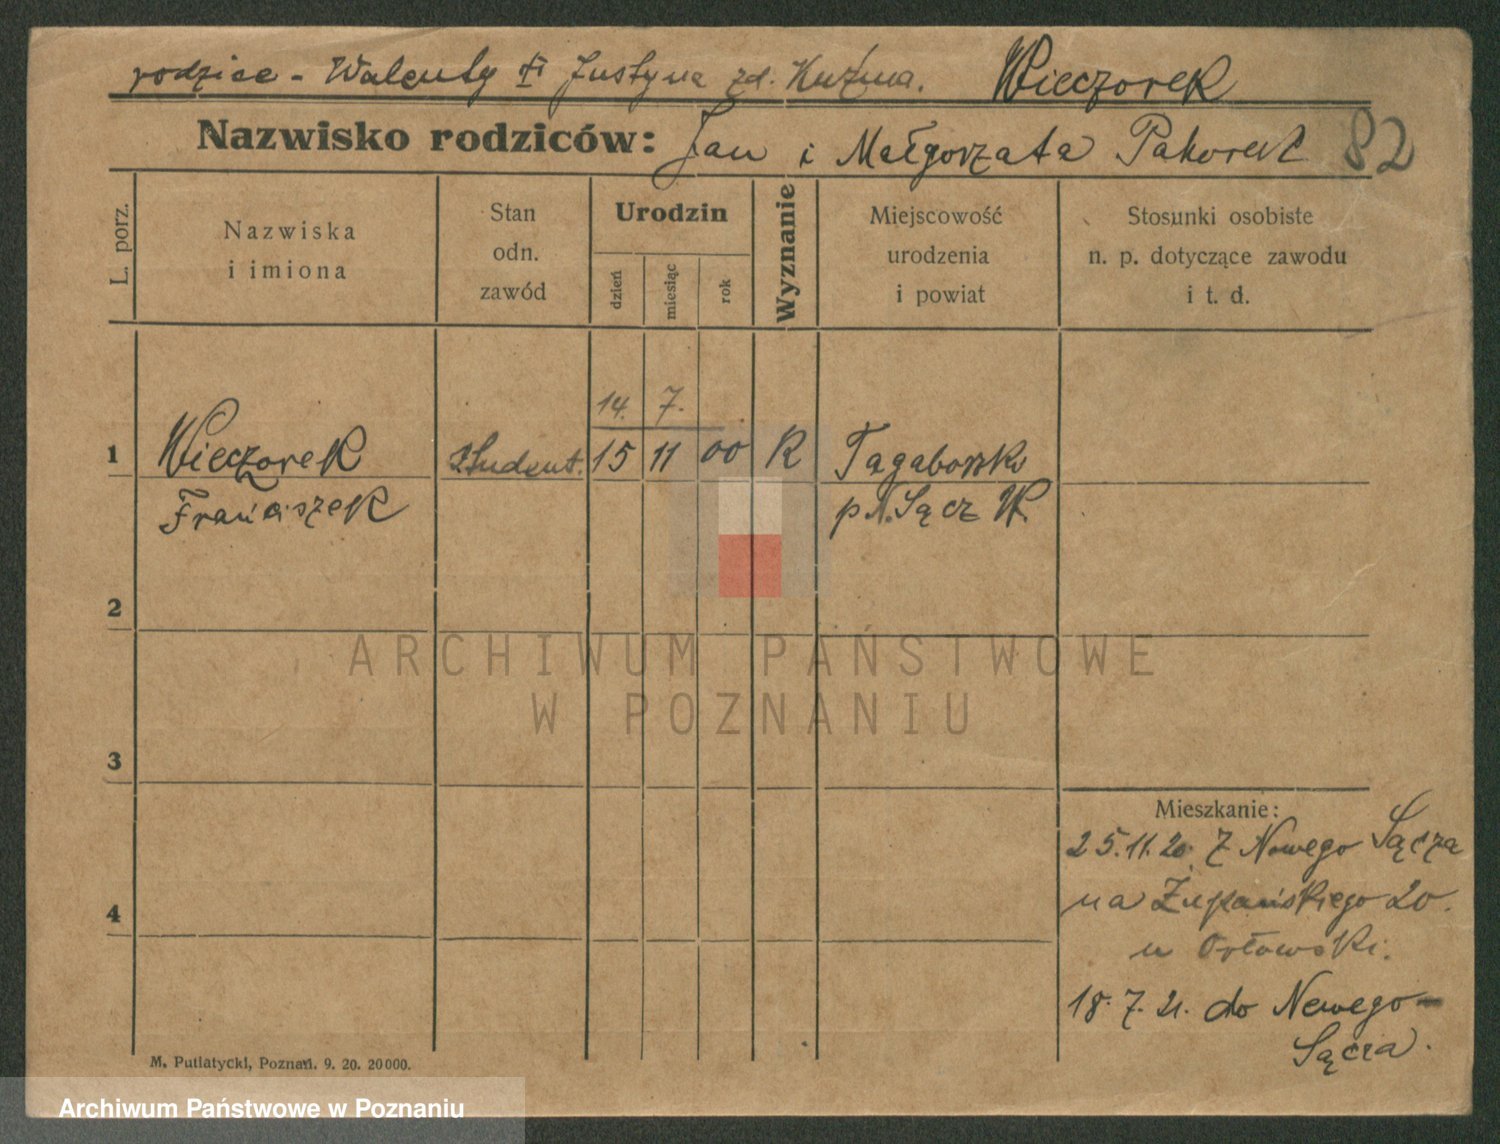 rodzice - Walenty i Justyna zd. Kuźma. Wieczorek
Nazwisko rodziców: Jan i Małgorzata 82
L. porz.
Nazwiska
i imiona
Stan
odn.
zawód
Urodzin
dzień
miesiąc
rok
Wyznanie
Miejscowość
urodzenia
i powiat
Stosunki osobiste
n. p. dotyczące zawodu
i t. d.
14. 7.
1 Wieczorek student. 15 11 00 R
Franciszek p N. Sącz
2
3
4
Mieszkanie:
25.11.20 z Nowego Sącza
na Żupańskiego 20.
u Orłowski.
18.7.21. do Nowego-
Sącza.
M. Putiatycki, Poznań. 9. 20. 20000.
ARCHIWUM PAŃSTWOWE
W POZNANIU
Archiwum Państwowe w Poznaniu